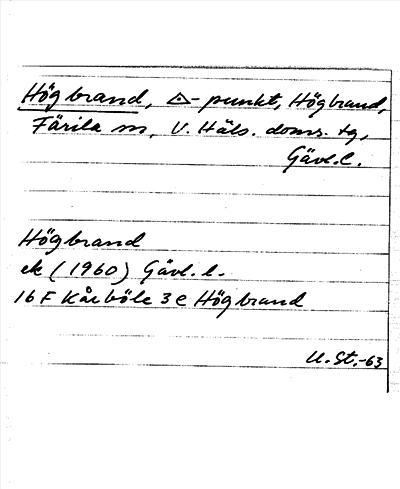 Högbrand, △-punkt, Högbrand,
Färila sn, V. Häls. doms. tg,
Gävl. l.
Högbrand
ek (1960) Gävl. l.
16 F Kårböle 3 e Högbrand
U. St. -63